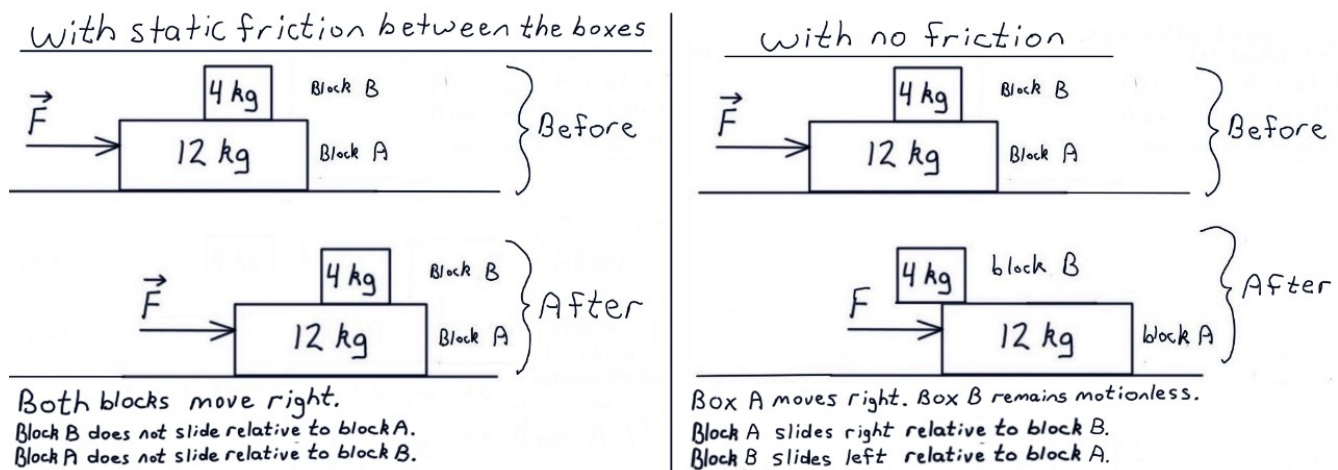 with static friction between the boxes
4 kg
Block B
F
12 kg
Block A
Before
4 kg
Block B
F
12 kg
Block A
After
Both blocks move right.
Block B does not slide relative to block A.
Block A does not slide relative to block B.
with no friction
4 kg
Block B
F
12 kg
Block A
Before
4 kg
block B
F
12 kg
block A
After
Box A moves right. Box B remains motionless.
Block A slides right relative to block B.
Block B slides left relative to block A.